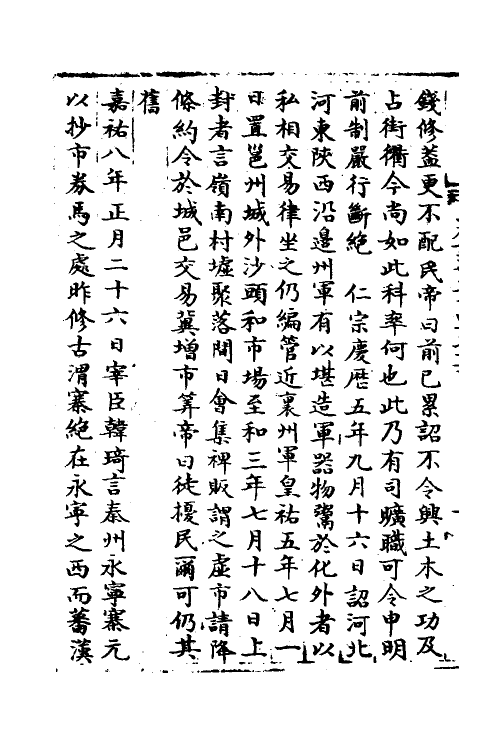 錢修蓋更不配民帝曰前已累詔不令興土木之功及
占街衢今尚如此科率何也此乃有司曠職可令申明
前制嚴行斷絶　仁宗慶歴五年九月十六日詔河北
河東陜西沿邊州軍有以堪造軍器物鬻於化外者以
私相交易律坐之仍編管近裏州軍皇祐五年七月一
日置邕州城外沙頭和市場至和三年七月十八日上
封者言嶺南村墟聚落間日會集裨販謂之虚市請降
條約令於城邑交易冀增市筭帝曰徒擾民爾可仍其
舊
嘉祐八年正月二十六日宰臣韓琦言秦州永寧寨元
以抄市劵馬之處昨修古渭寨絶在永寧之西而蕃漢